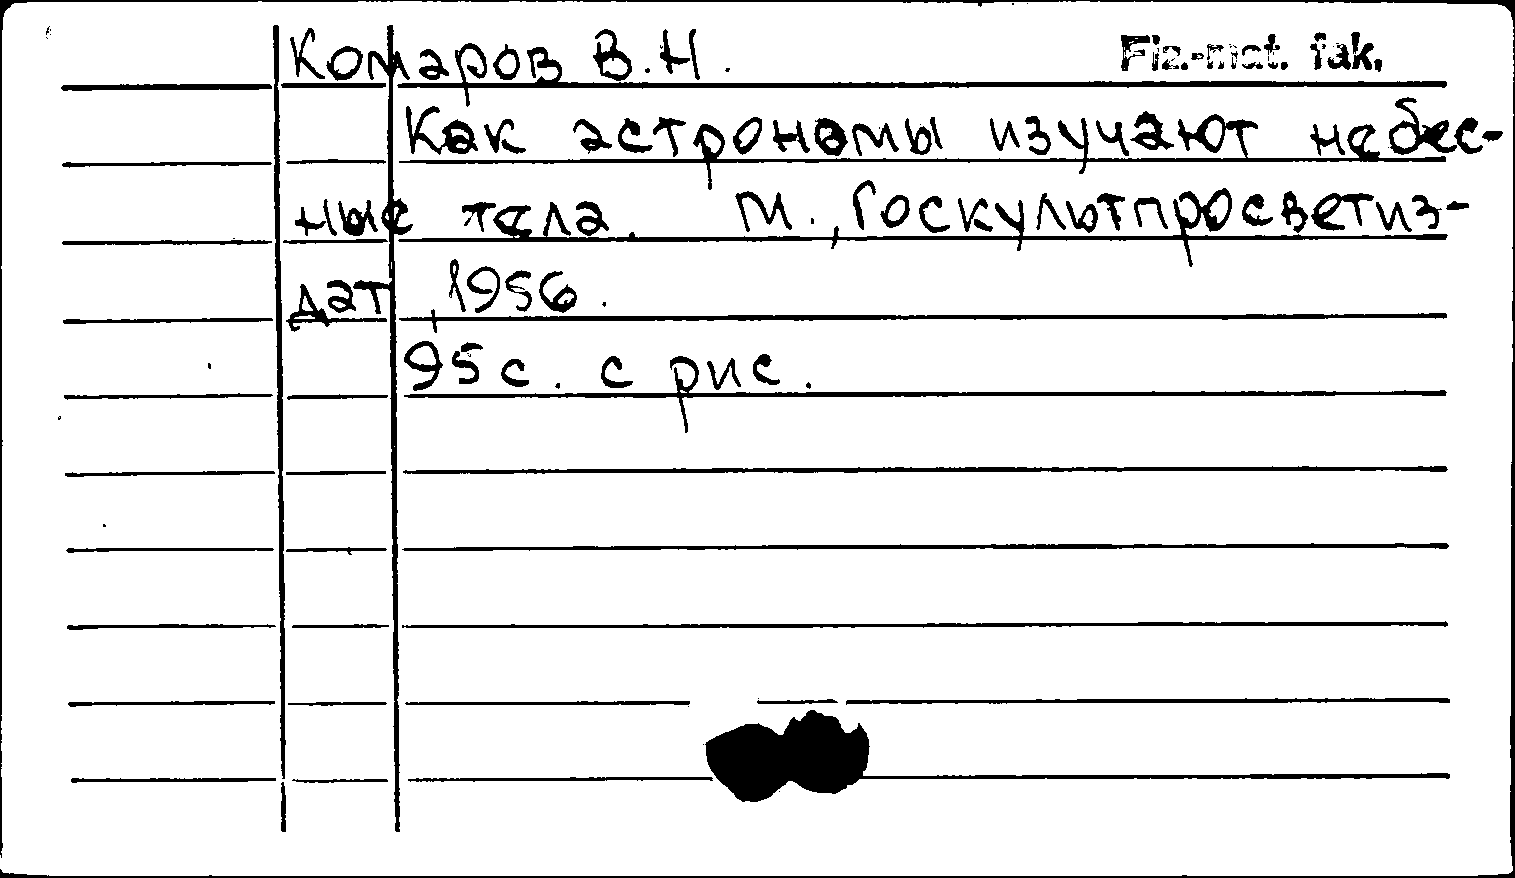 Комаров В.Н. Fiz.-mat. fak.
Как астрономы изучают небес-
ные тела. М., Госкультпросветиз-
дат, 1956.
95 с. с рис.